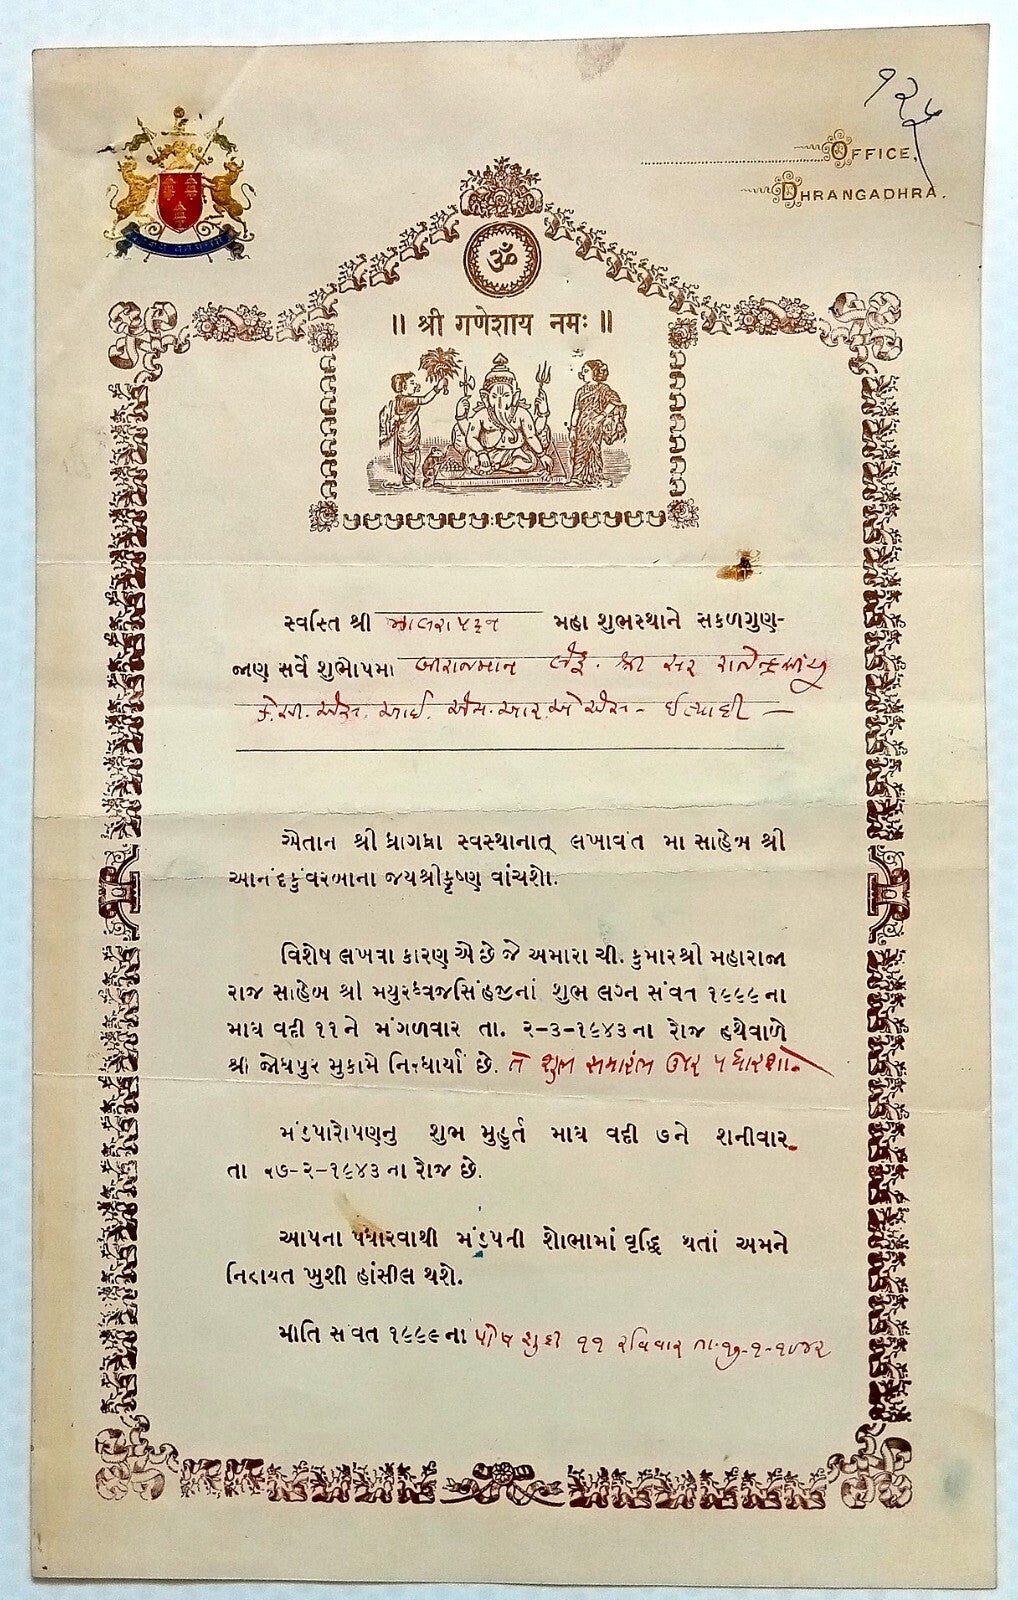 ૧૨૫
OFFICE,
DHRANGADHRA.
ૐ
॥ श्री गणेशाय नमः ॥
સ્વસ્તિ શ્રી ઝાલરાપટન મહા શુભસ્થાને સકળગુણ-
જાણ સર્વે શુભોપમા બીરાજમાન શ્રી સર રાજેન્દ્રસિંહજી
કે.સી.એસ. આઈ. એમ. આર. એ એસ - ઈત્યાદી -
ઐતાન શ્રી ધ્રાંગધ્રા સ્વસ્થાનાત્ લખાવંત મા સાહેબ શ્રી
આનંદકુંવરબાના જયશ્રીકૃષ્ણ વાંચશો.
વિશેષ લખવા કારણ એ છે જે અમારા ચી. કુમારશ્રી મહારાજા
રાજ સાહેબ શ્રી મયુરધ્વજસિંહજીનાં શુભ લગ્ન સંવત ૧૯૯૯ ના
માઘ વદી ૧૧ ને મંગળવાર તા. ૨-૩-૧૯૪૩ ના રોજ હથેવાળે
શ્રી જોધપુર મુકામે નિરધાર્યા છે. તે શુભ સમારંભ ઊપર પધારશો.
મંડપારોપણનુ શુભ મુહુર્ત માઘ વદી ૭ ને શનીવાર.
તા ૨૭-૨-૧૯૪૩ ના રોજ છે.
આપના પધારવાથી મંડપની શોભામાં વૃદ્ધિ થતાં અમને
નિહાયત ખુશી હાંસીલ થશે.
મીતિ સંવત ૧૯૯૯ ના પોષ શુદી ૧૧ રવિવાર તા. ૧૭-૧-૧૯૪૩